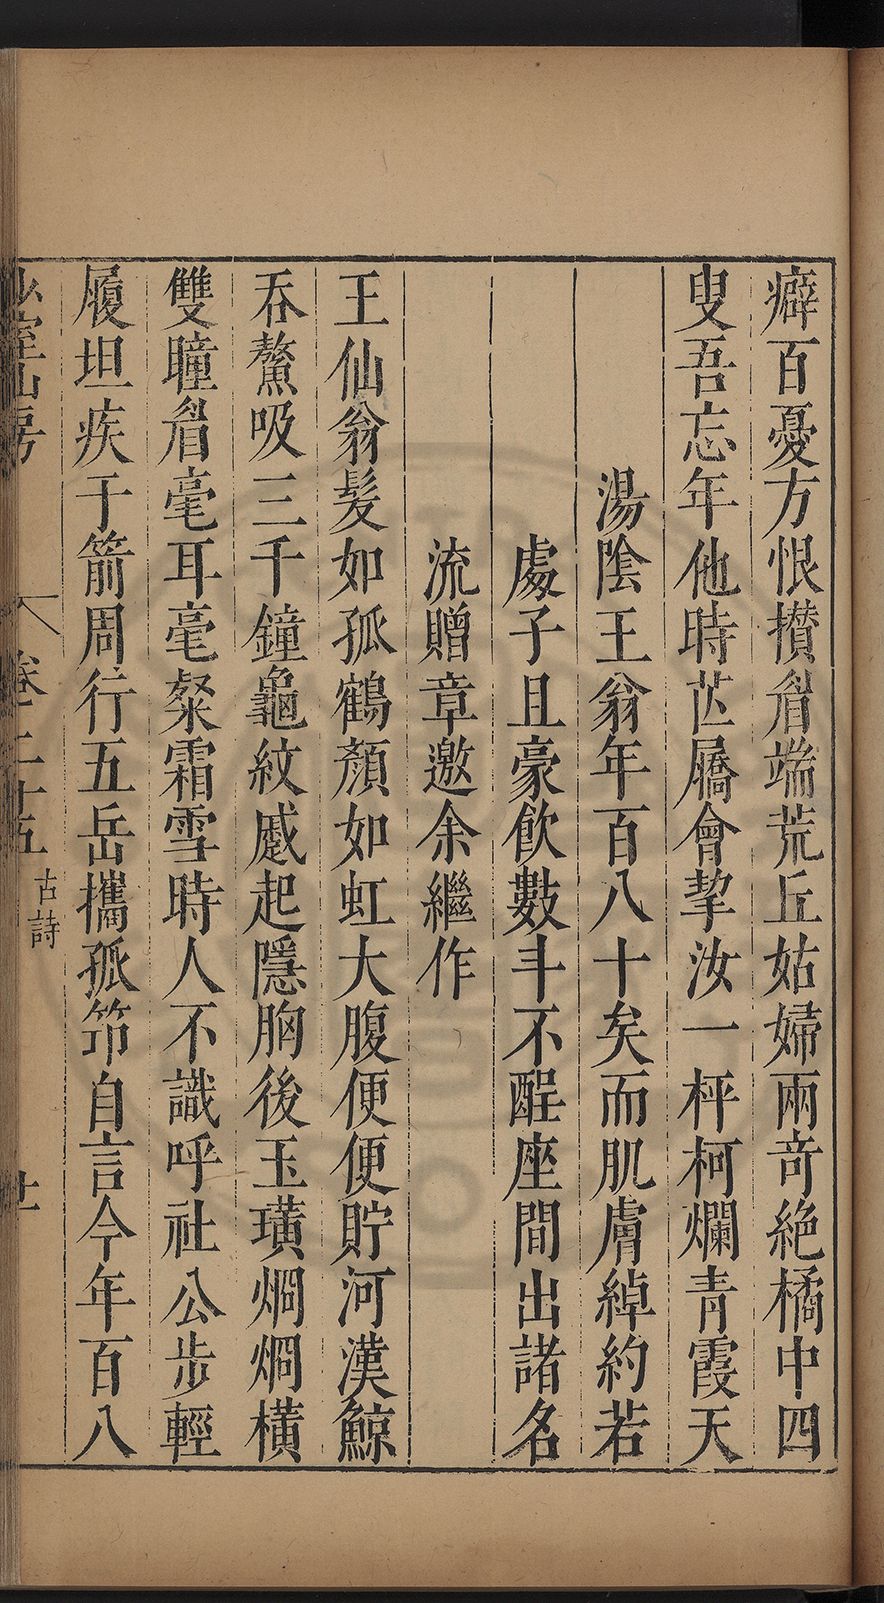 癖百憂方恨攅眉端荒丘姑婦兩竒絶橘中四
叟吾忘年他時芒屩會挈汝一枰柯爛青霞天
湯陰王翁年百八十矣而肌膚綽約若
處子且豪飲數斗不酲座間出諸名
流贈章邀余繼作
王仙翁髮如孤鶴顏如虹大腹便便貯河漢鯨
吞鰲吸三千鐘龜紋蹙起隱胸後玉璜烱烱橫
雙瞳眉毫耳毫粲霜雪時人不識呼社公步輕
履坦疾于箭周行五岳攜孤筇自言今年百八
少室山房
卷二十五
古詩
廿